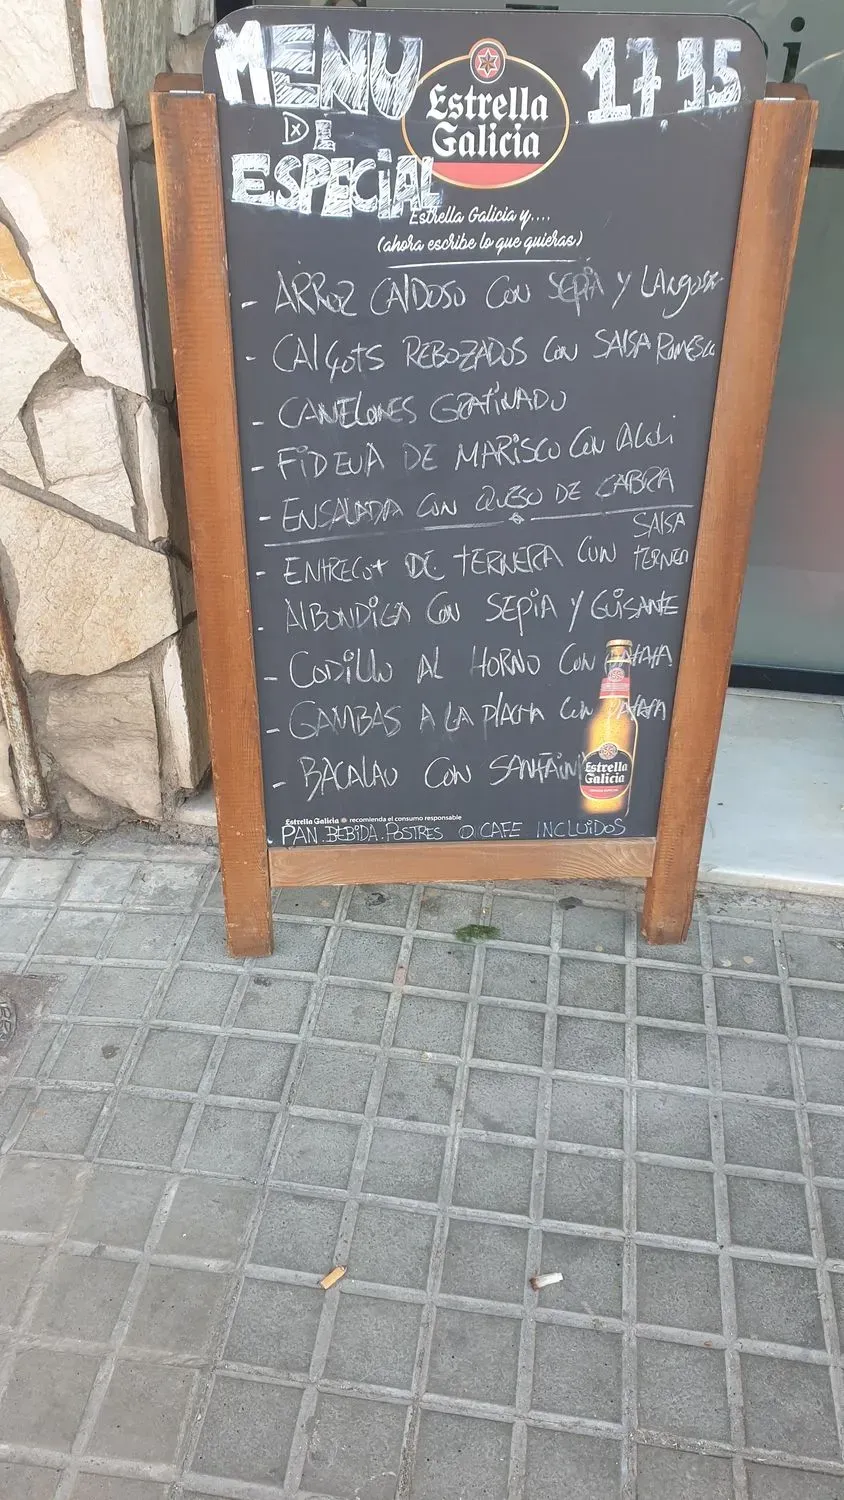 MENU
DI
ESPECIAL
17,95
Estrella
Galicia
Estrella Galicia y....
(ahora escribe lo que quieras)
- ARROZ CALDOSO CON SEPIA Y
- CALÇOTS REBOZADOS CON SALSA ROMESCU
- CANELONES GRATINADO
- FIDEUA DE MARISCO CON ALOLI
- ENSALADA CON QUESO DE CABRA
- ENTRECOT DE TERNERA CON SALSA
- ALBONDIGA CON SEPIA Y GUISANTE
- CODILLO AL HORNO CON PATATA
- GAMBAS A LA PLACHA CON PATATA
- BACALAO CON
Estrella
Galicia
Estrella Galicia recomienda el consumo responsable
PAN. BEBIDA. POSTRES O CAFE INCLUIDOS